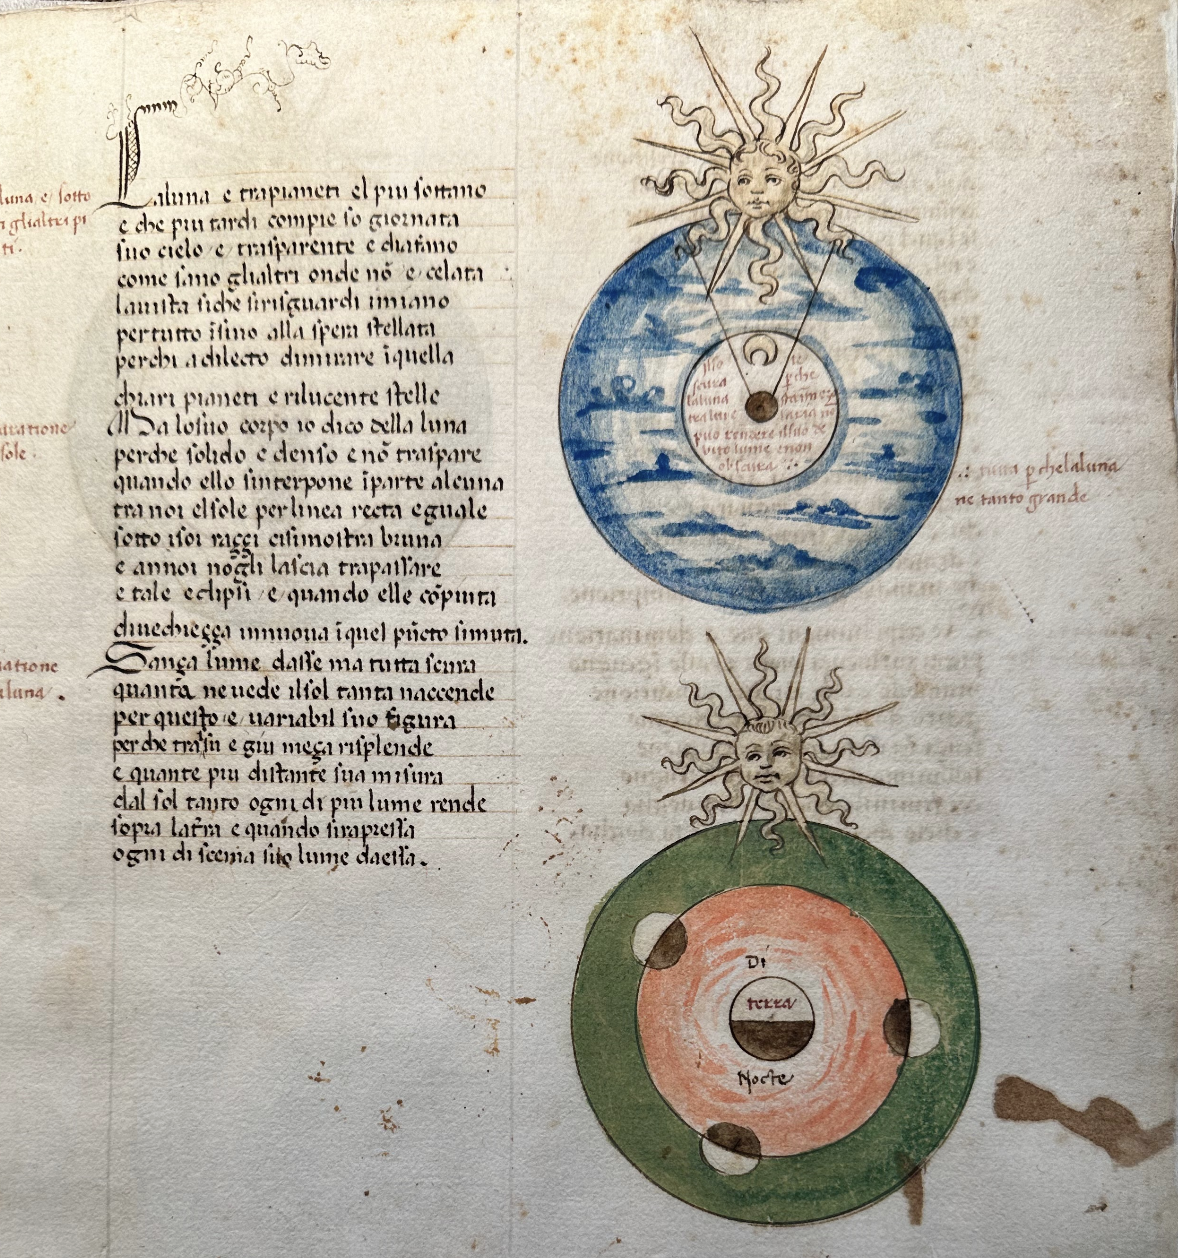 luna e sotto
glialtri pi
ti.
Laluna e trapianeti el piu sottano
e che piu tardi compie so giornata
suo cielo e trasparente e diafano
come sano glialtri onde nō e celata
lauista siche sirisguardi imiano
per tutto īsino alla spera stellata
perchi a dilecto dimirare īquella
chiari pianeti e rilucente stelle
Ma losuo corpo io dico della luna
perche solido e denso e nō traspare
quando ello sinterpone īparte alcuna
tra noi elsole per linea recta eguale
sotto isoi raggi cisimostra bruna
e annoi nōgli lascia trapassare
e tale eclipsi e quando elle cōpiuta
diuechiegga innoua īquel pūcto simuta.
Sanga lume dasse ma tutta scura
quanta neuede ilsol tanta naccende
per questo e uariabil suo figura
perche trasu e giu mega risplende
e quante piu distante sua misura
dal sol tanto ogni di piu lume rende
sopra latra e quando sirapressa
ogni di scema suo lume daessa.
ratione
sole.
ratione
luna.
scura
laluna
perche
tra
può rendere ilsuo de
bito lume enon
obscura
p chelaluna
ne tanto grande
Di
terra
Nocte